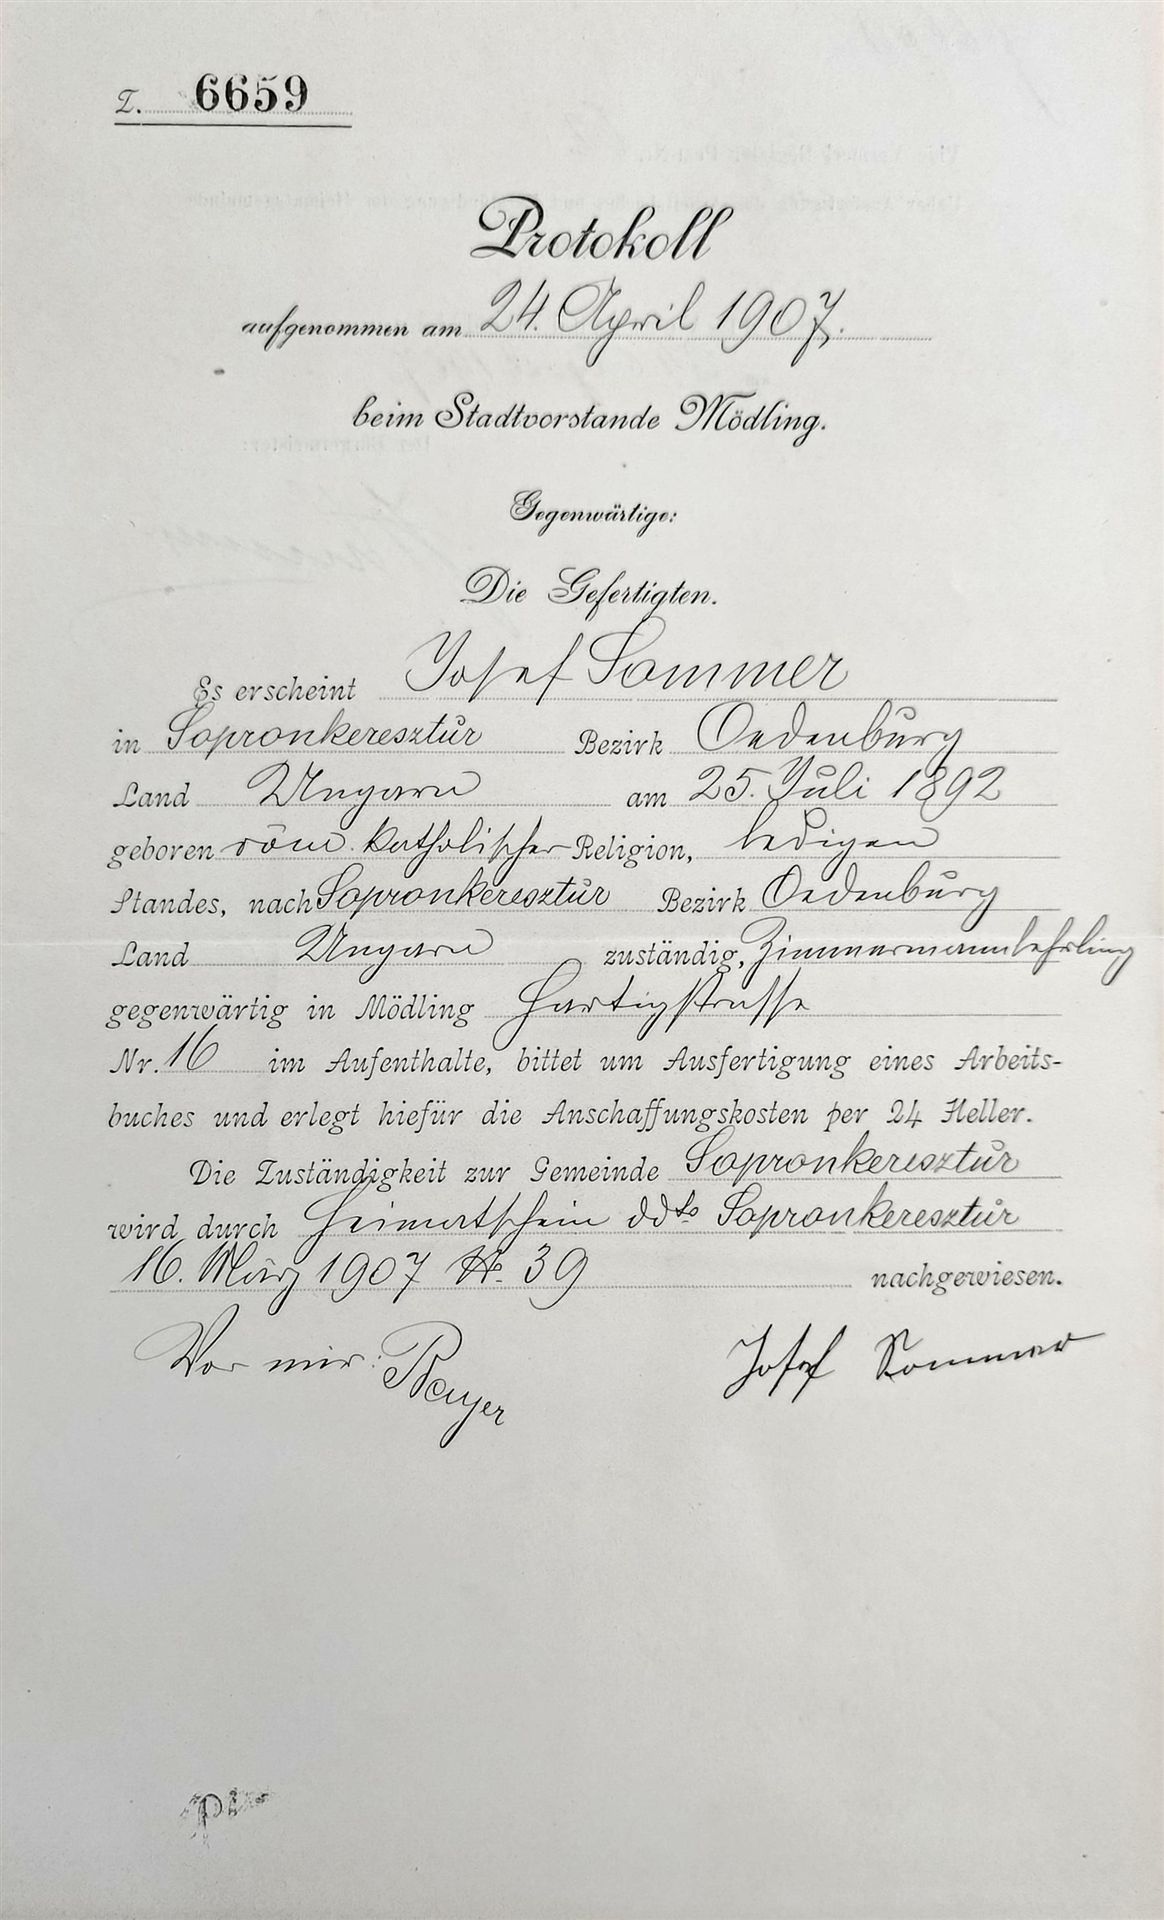 Z. 6659
Protokoll
aufgenommen am 24. April 1907.
beim Stadtvorstande Mödling.
Gegenwärtige:
Die Gefertigten.
Es erscheint Josef Sommer
in Sopronkeresztúr Bezirk Oedenburg
Land Ungarn am 25. Juli 1892
geboren röm. katholischer Religion, ledigen
Standes, nach Sopronkeresztúr Bezirk Oedenburg
Land Ungarn zuständig, Zimmermannlehrling
gegenwärtig in Mödling Hartigstrasse
Nr. 16 im Aufenthalte, bittet um Ausfertigung eines Arbeits-
buches und erlegt hiefür die Anschaffungskosten per 24 Heller.
Die Zuständigkeit zur Gemeinde Sopronkeresztúr
wird durch Heimatschein ddto Sopronkeresztúr
16. März 1907 No. 39 nachgewiesen.
Vor mir: Bayer Josef Sommer